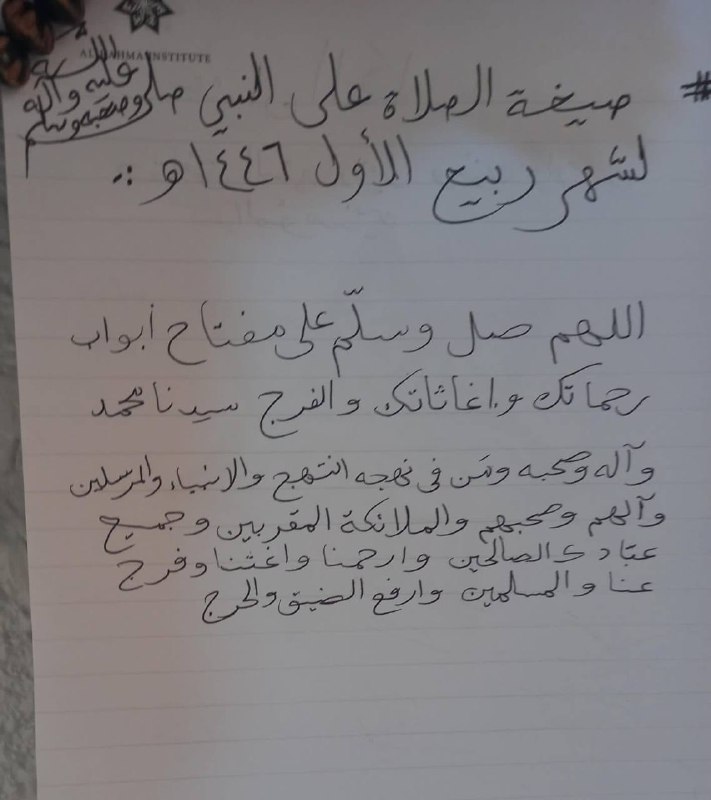 AL RAHMA INSTITUTE
# صيغة الصلاة على النبي صلى الله
عليه وآله
وصحبه وسلم
لشهر ربيع الأول ١٤٤٦هـ :.
اللهم صل وسلّم على مفتاح أبواب
رحماتك وإغاثاتك والفرج سيدنا محمد
وآله وصحبه ومَن في نهجه انتهج والانبياء والمرسلين
وآلهم وصحبهم والملائكة المقربين وجميع
عبادك الصالحين وارحمنا واغثنا وفرج
عنا والمسلمين وارفع الضيق والحرج